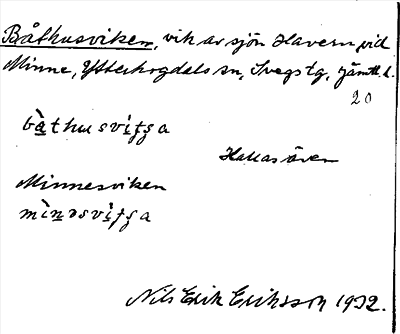 Båthusviken, vik av sjön Havern vid
Minne, Ytterhogdals sn, Svegs tg, Jämtl. l.
20
bàthusvìʃʒa
Kallas även
Minnesviken
mìnəsvìʃʒa
Nils Erik Eriksson 1932.